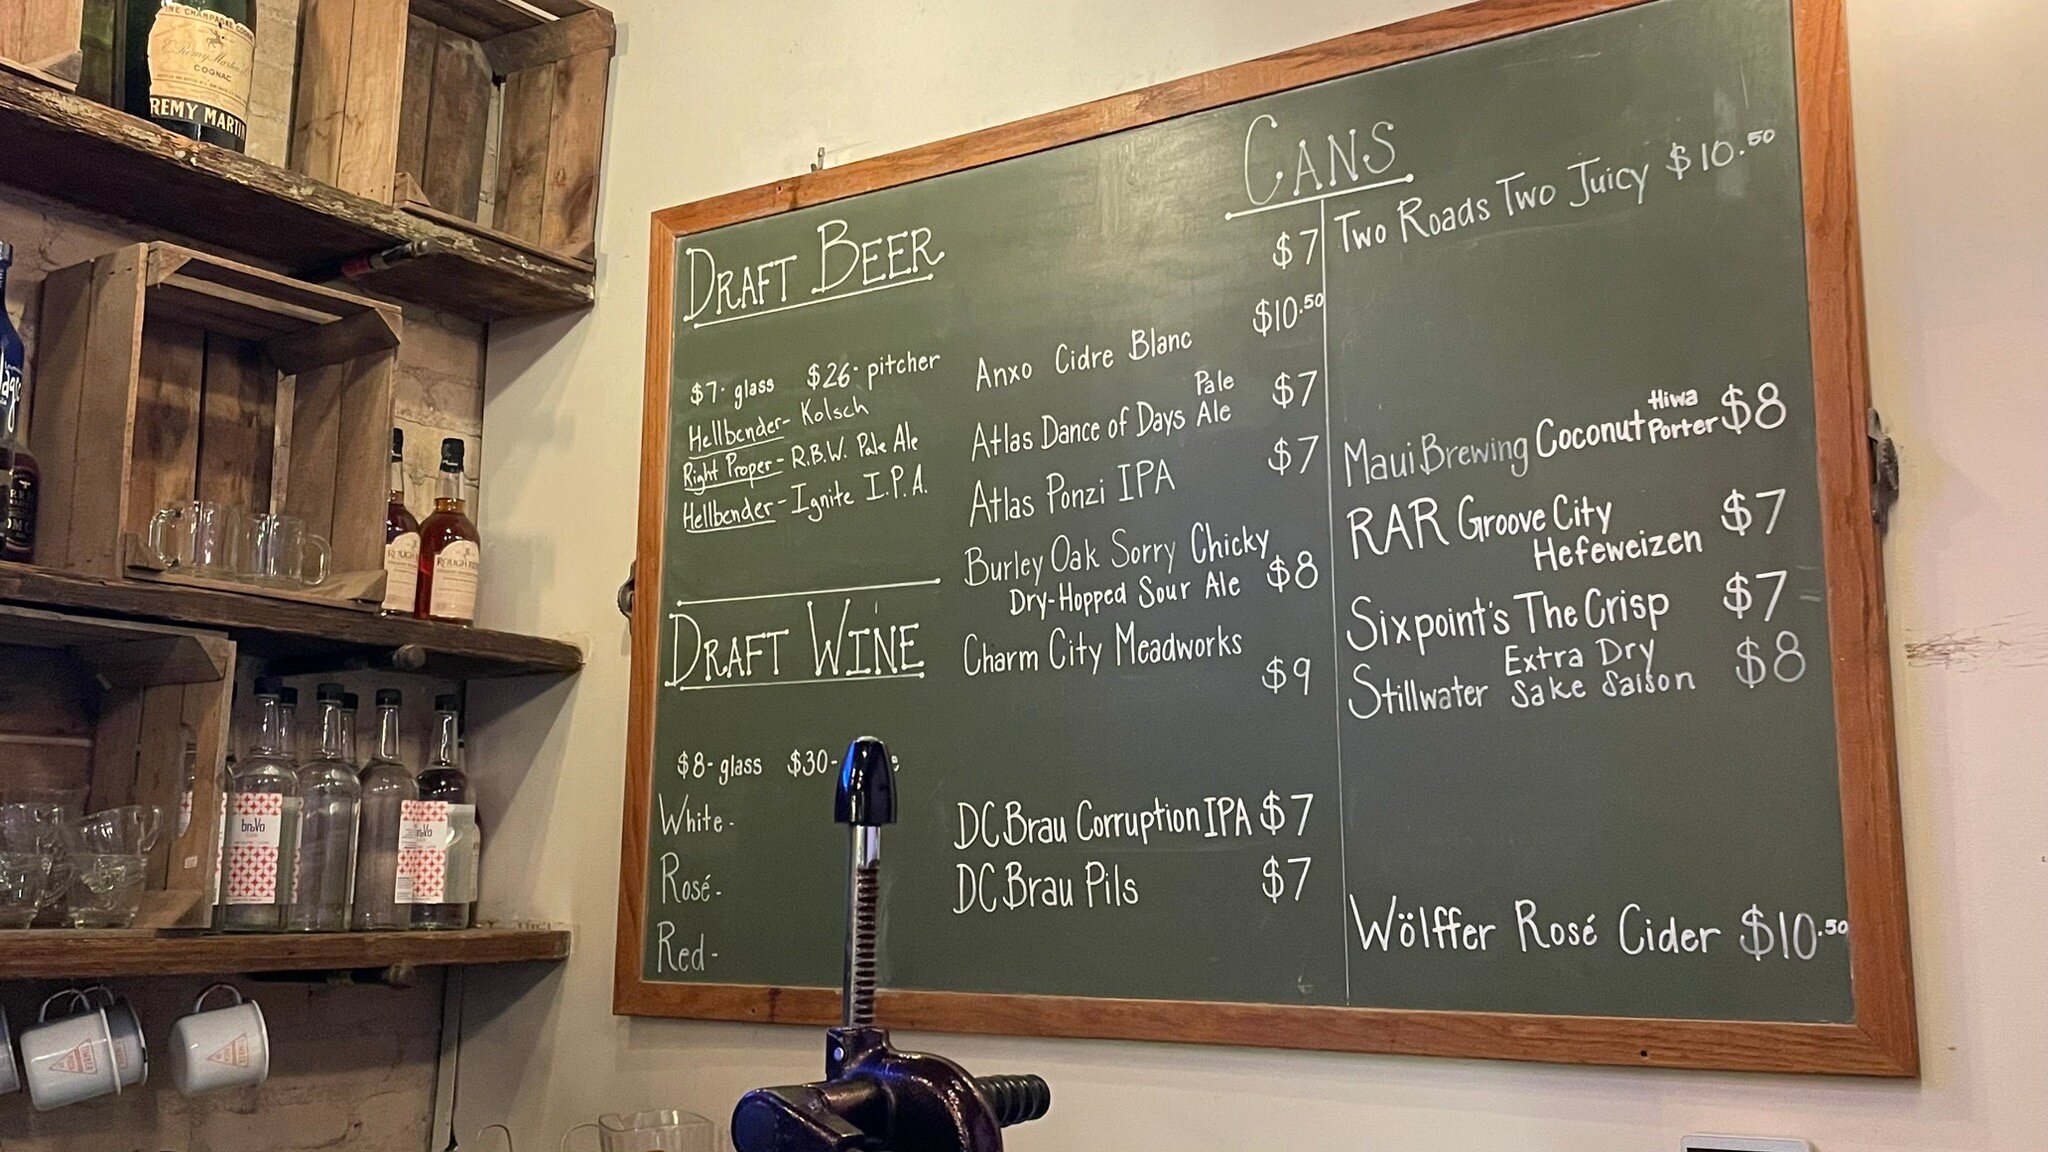 FINE CHAMPAGNE COGNAC
E. Rémy Martin
COGNAC
REMY MARTIN
ROUGH
ROUGH RIDER
braVo
DRAFT BEER
$7- glass $26- pitcher
Hellbender- Kolsch
Right Proper- R.B.W. Pale Ale
Hellbender- Ignite I.P.A.
DRAFT WINE
$8- glass $30-
White-
Rosé-
Red-
CANS
$7
Anxo Cidre Blanc $10.50
Atlas Dance of Days Pale Ale $7
Atlas Ponzi IPA $7
Burley Oak Sorry Chicky
Dry-Hopped Sour Ale $8
Charm City Meadworks
$9
DC Brau Corruption IPA $7
DC Brau Pils $7
Two Roads Two Juicy $10.50
Maui Brewing Coconut Hiwa Porter $8
RAR Groove City
Hefeweizen $7
Sixpoint's The Crisp $7
Stillwater Extra Dry
Sake Saison $8
Wölffer Rosé Cider $10.50